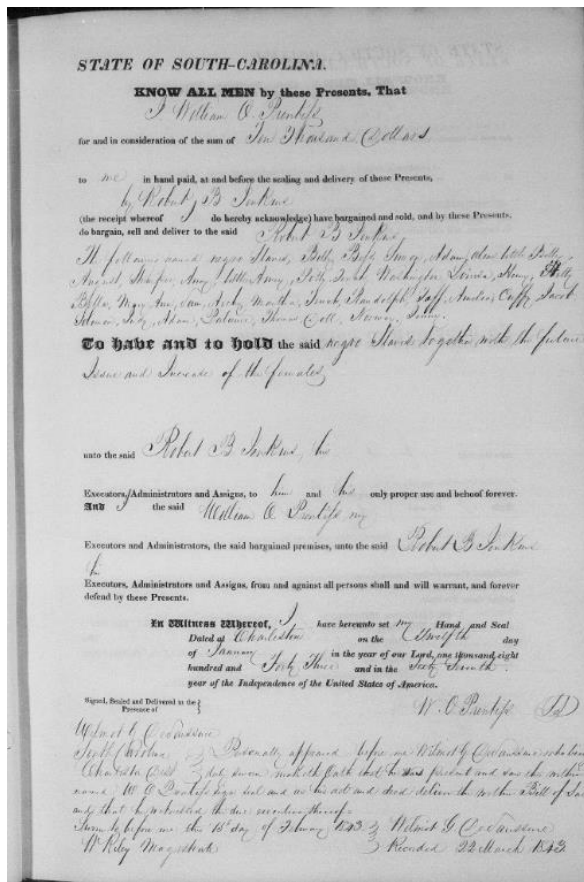 STATE OF SOUTH-CAROLINA.
KNOW ALL MEN by these Presents, That
I William O. Prentiss
for and in consideration of the sum of Ten Thousand Dollars
to me in hand paid, at and before the sealing and delivery of these Presents,
by Robert B Jenkins
(the receipt whereof I do hereby acknowledge) have bargained and sold, and by these Presents,
do bargain, sell and deliver to the said Robert B Jenkins
The following named negro Slaves, Billy, Adam, little Billy,
August, Amy, little Amy, Washington, Louisa,
Bella, Mary Ann, Sam, Martha, Randolph, Cuffy, Jacob
Solomon, Judy, Adam, Thomas,
To have and to hold the said negro Slaves together with the future
Issue and Increase of the females
unto the said Robert B Jenkins, his
Executors, Administrators and Assigns, to him and his only proper use and behoof forever.
And I the said William O Prentiss my
Executors and Administrators, the said bargained premises, unto the said Robert B Jenkins
his
Executors, Administrators and Assigns, from and against all persons shall and will warrant, and forever
defend by these Presents.
In Witness Whereof, I have hereunto set my Hand and Seal
Dated at Charleston on the Twelfth day
of January in the year of our Lord, one thousand eight
hundred and Forty Three and in the Sixty Seventh
year of the Independence of the United States of America.
Signed, Sealed and Delivered in the
Presence of
W. O Prentiss
Wilmot G DeSaussure
South Carolina Personally appeared before me Wilmot G DeSaussure who being
Charleston Dist duly sworn maketh Oath that he was present and saw the within
named W O Prentiss sign seal and as his act and deed deliver the within Bill of Sale
and that he witnessed the due execution thereof
Sworn to before me this 15t day of February 1843 Wilmot G DeSaussure
W Riley Magistrate Recorded 22 March 1843